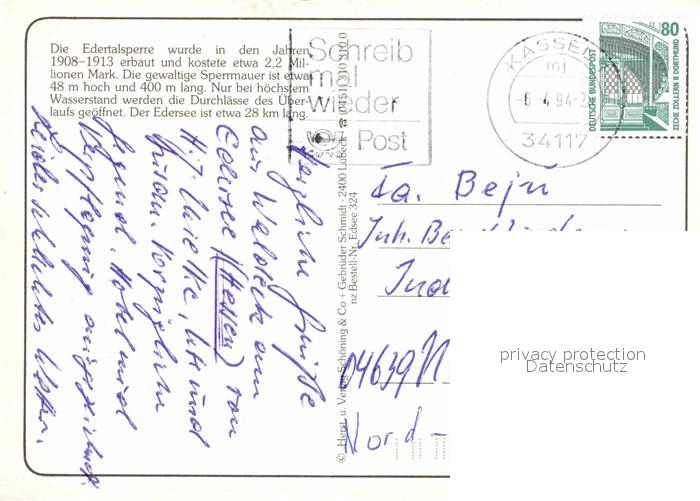 Die Edertalsperre wurde in den Jahren
1908-1913 erbaut und kostete etwa 2,2 Mil-
lionen Mark. Die gewaltige Sperrmauer ist etwa
48 m hoch und 400 m lang. Nur bei höchstem
Wasserstand werden die Durchlässe des Über-
laufs geöffnet. Der Edersee ist etwa 28 km lang.
Schreib
mal
wieder
Post
KASSEL
mj
-6.4.94-2
34117
80
DEUTSCHE BUNDESPOST
ZECHE ZOLLERN II DORTMUND
Herzliche Grüße
aus Waldeck am
Edersee (Hessen) von
und
Jugend. Hotel und
Verpflegung ausgezeichnet.
Leider schlechtes Wetter.
© Herst. u. Verlag Schöning & Co + Gebrüder Schmidt · 2400 Lübeck ☎ (0451) 310310
nz Bestell-Nr. Edsee 324
Fa. Beju
Inh.
04639
Nord-
privacy protection
Datenschutz